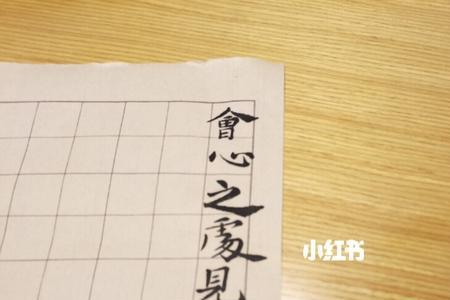 會心之處見
小红书